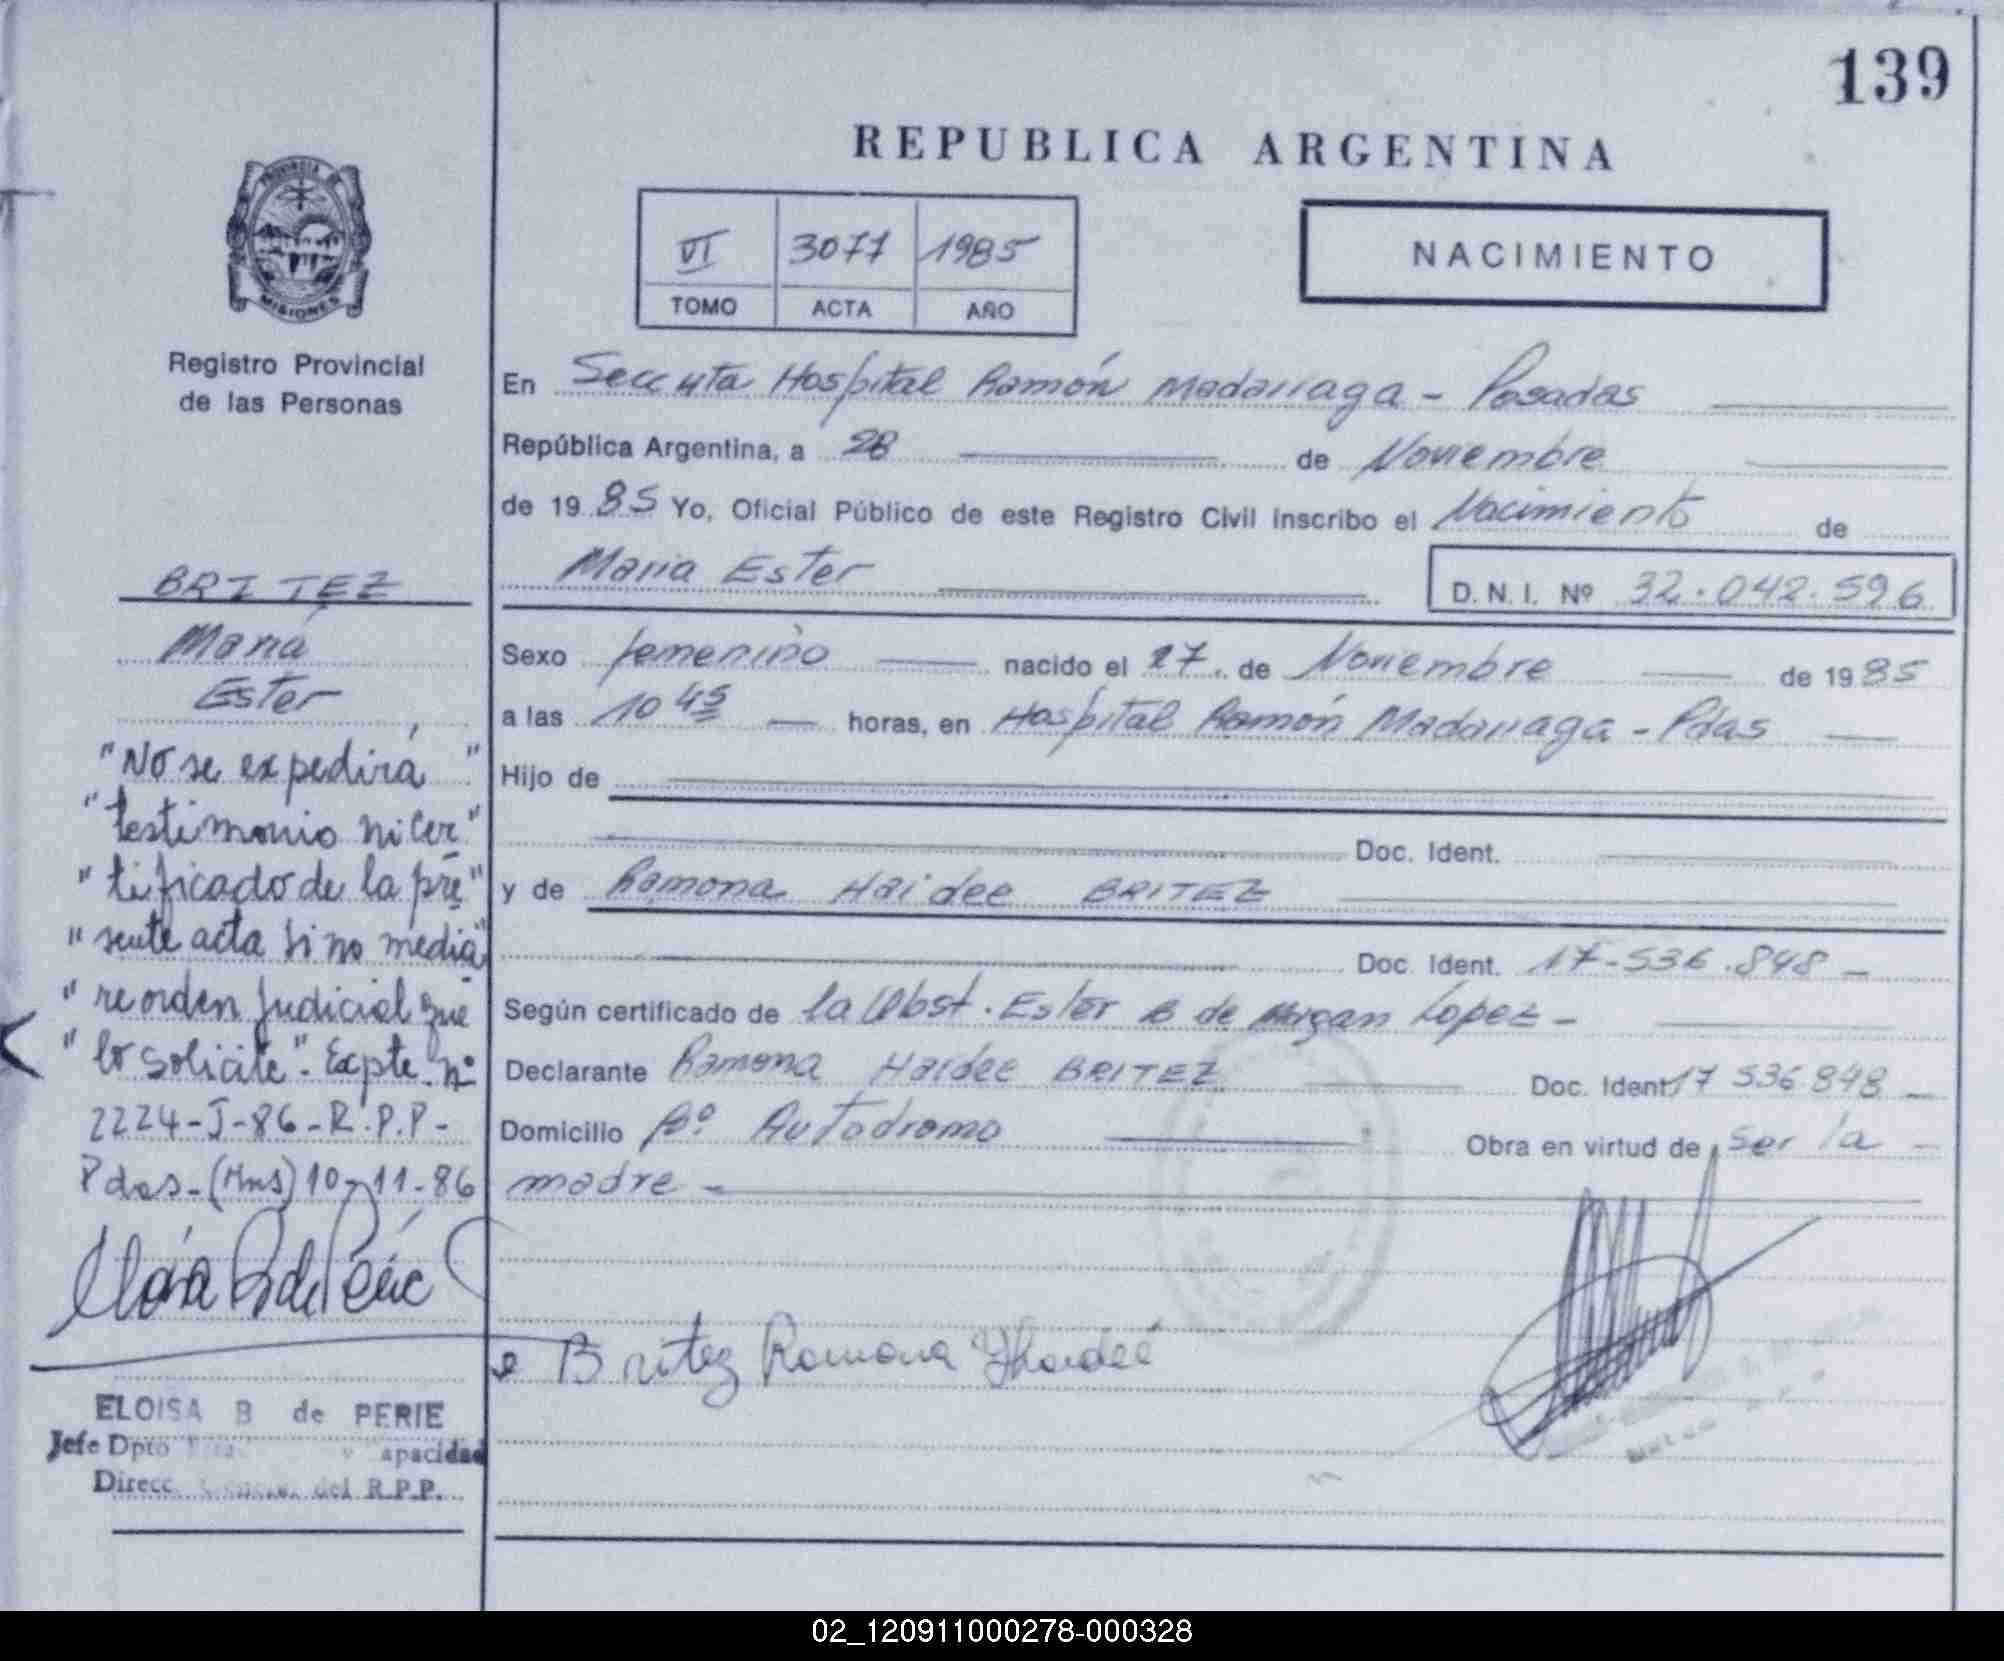 139
REPUBLICA ARGENTINA
PROVINCIA DE
MISIONES
Registro Provincial
de las Personas
VI 3077 1985
TOMO ACTA AÑO
NACIMIENTO
En Secc uta Hospital Ramón Madariaga - Posadas
República Argentina, a 28 de Noviembre
de 19 85 Yo, Oficial Público de este Registro Civil inscribo el Nacimiento de
Maria Ester
D. N. I. Nº 32.042.596
Sexo femenino nacido el 27. de Noviembre de 19 85
a las 10 45 horas, en Hospital Ramón Madariaga - Pdas
Hijo de
Doc. Ident.
y de Ramona Haidee BRITEZ
Doc. Ident. 17-536.848 -
Según certificado de la Obst. Ester B de Lopez -
Declarante Ramona Haidee BRITEZ Doc. Ident 17 536 848 -
Domicilio Bº Autodromo Obra en virtud de ser la -
madre -
Britez Ramona Haideé
BRITEZ
Maria
Ester
"No se expedirá"
"testimonio ni cer"
"tificado de la pre"
"sente acta si no media"
"re orden Judicial que
"lo solicite". Expte. nº
2224-J-86-R.P.P-
Pdas-(Mns) 10-11-86
ELOISA B de PERIE
Jefe Dpto y apacidad
Direcc. del R.P.P.
02_120911000278-000328